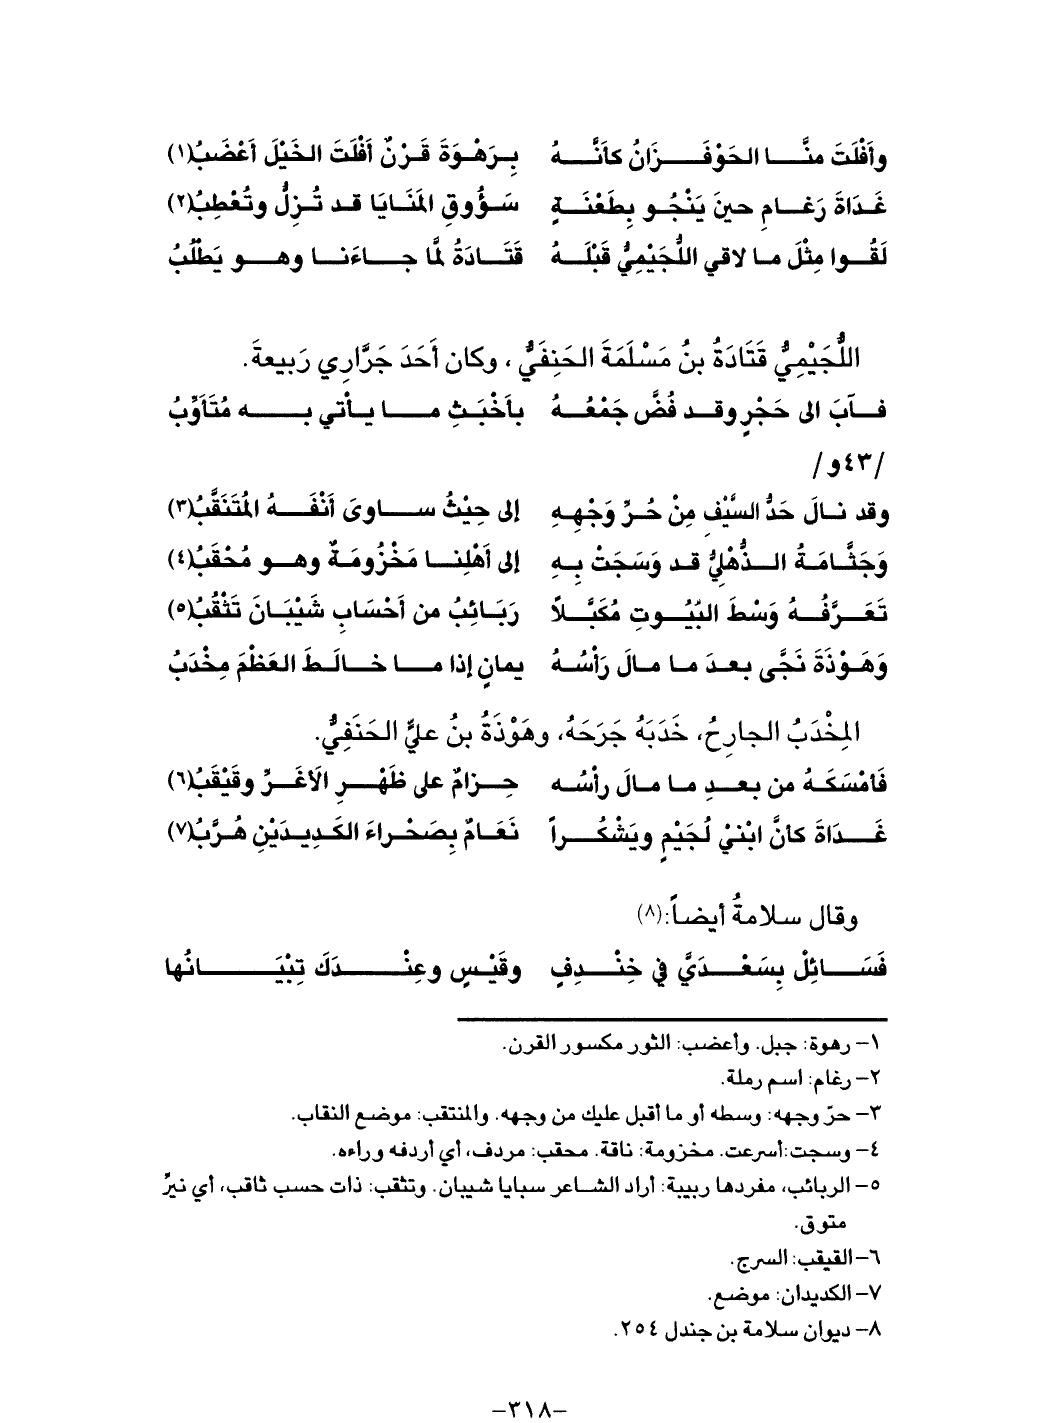 وأَفْلَتَ منَّا الحَوْفَزَانُ كأَنَّهُ بِرَهْوَةَ قَرْنٌ أَفْلَتَ الخَيْلَ أَعْضَبُ(١)
غَدَاةَ رَغَامِ حينَ يَنْجُو بِطَعْنَةٍ سَؤُوقِ المَنَايَا قد تُزِلُّ وتُعْطِبُ(٢)
لَقُوا مِثْلَ ما لاقي اللُّجَيْمِيُّ قَبْلَهُ قَتَادَةُ لمَّا جاءَنا وهو يَطْلُبُ
اللُّجَيْمِيُّ قَتَادَةُ بنُ مَسْلَمَةَ الحَنِفَيُّ، وكان أَحَدَ جَرَّارِي رَبيعةَ.
فآبَ الى حَجْرٍ وقد فُضَّ جَمْعُهُ بأَخْبَثِ ما يأْتي به مُتَأَوِّبُ
/٤٣و/
وقد نالَ حَدُّ السَّيْفِ مِنْ حُرِّ وَجْهِهِ إلى حِيْثُ ساوى أَنْفَهُ المُتَنَقَّبُ(٣)
وَجَثَّامَةُ الذُّهْلِيُّ قد وَسَجَتْ بِهِ إلى أَهْلِنا مَخْزُومَةٌ وهو مُحْقَبُ(٤)
تَعَرَّفُهُ وَسْطَ البُيُوتِ مُكَبَّلاً رَبَائِبُ من أَحْسَابِ شَيْبَانَ تَثْقُبُ(٥)
وَهَوْذَةَ نَجَّى بعدَ ما مالَ رَأْسُهُ يمانٍ إذا ما خالَطَ العَظْمَ مِخْدَبُ
المِخْدَبُ الجارِحُ، خَدَبَهُ جَرَحَهُ، وهَوْذَةُ بنُ عليٍّ الحَنَفِيُّ.
فَأَمْسَكَهُ من بعدِ ما مالَ رأْسُه حِزامٌ على ظَهْرِ الأَغَرِّ وقَيْقَبُ(٦)
غَدَاةَ كأنَّ ابْنيْ لُجَيْمٍ ويَشْكُراً نَعَامٌ بِصَحْراءَ الكَدِيدَيْنِ هُرَّبُ(٧)
وقال سلامةُ أيضاً:(٨)
فَسَائِلْ بِسَعْدَيَّ في خِنْدِفٍ وقَيْسٍ وعِنْدَكَ تِبْيَانُها
١- رهوة: جبل. وأعضب: الثور مكسور القرن.
٢- رغام: اسم رملة.
٣- حرّ وجهه: وسطه أو ما أقبل عليك من وجهه. والمنتقب: موضع النقاب.
٤- وسجت:أسرعت. مخزومة: ناقة. محقب: مردف، أي أردفه وراءه.
٥- الربائب، مفردها ربيبة: أراد الشاعر سبايا شيبان. وتثقب: ذات حسب ثاقب، أي نيرٌ
متوق.
٦-القيقب: السرج.
٧- الكديدان: موضع.
٨- ديوان سلامة بن جندل ٢٥٤.
-٣١٨-